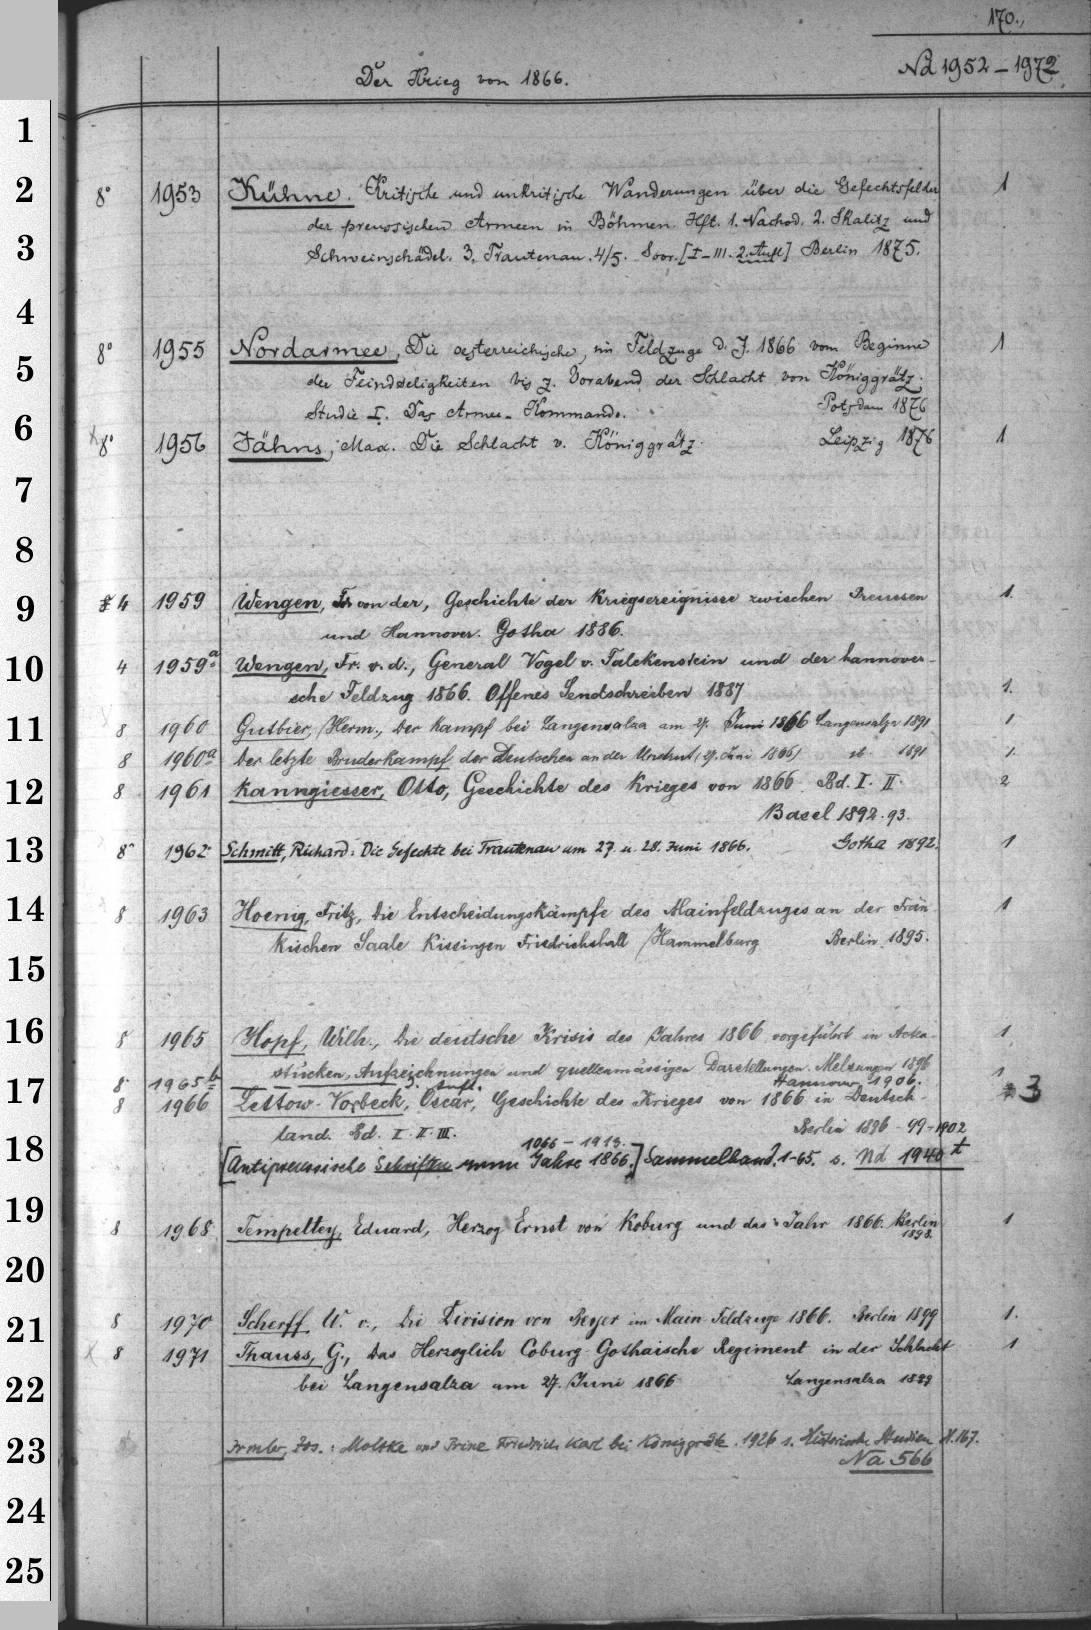 170.,
Nd 1952 – 1972
Der Krieg von 1866.
1
2
3
4
5
6
7
8
9
10
11
12
13
14
15
16
17
18
19
20
21
22
23
24
25
8° 1953 Kühne. Kritische und unkritische Wanderungen über die Gefechtsfelder 1
der preussischen Armeen in Böhmen. Hft. 1. Nachod. 2. Skalitz und
Schweinschädel. 3. Trautenau. 4/5. Soor. [I–III. 2. Aufl] Berlin 1875.
8° 1955 Nordarmee, Die oesterreichische, im Feldzuge d. J. 1866 vom Beginne 1
der Feindseligkeiten bis z. Vorabend der Schlacht von Königgrätz.
Studie I. Das Armee-Kommando. Potsdam 1876
8° 1956 Jähns, Max. Die Schlacht v. Königgrätz. Leipzig 1876 1
4 1959 Wengen, Fr. von der, Geschichte der Kriegsereignisse zwischen Preussen 1.
und Hannover. Gotha 1886.
4 1959a Wengen, Fr. v. d., General Vogel v. Falckenstein und der hannover-
sche Feldzug 1866. Offenes Sendschreiben 1887 1.
8 1960 Gutbier, Herm., Der Kampf bei Langensalza am 27. Juni 1866 Langensalza 1891 1
8 1960a Der letzte Bruderkampf der Deutschen an der Unstrut (27. Juni 1866) ib 1891 1.
8 1961 Kanngiesser, Otto, Geschichte des Krieges von 1866. Bd. I. II. 2
Basel 1892. 93.
8° 1962 Schmitt, Richard: Die Gefechte bei Trautenau am 27. u. 28. Juni 1866. Gotha 1892. 1
8 1963 Hoenig, Fritz, Die Entscheidungskämpfe des Mainfeldzuges an der Frän- 1
kischen Saale Kissingen Friedrichshall Hammelburg Berlin 1895.
8 1965 Hopf, Wilh., Die deutsche Krisis des Jahres 1866 vorgeführt in Akten- 1
stücken, Aufzeichnungen und quellenmässigen Darstellungen. Melsungen 1896
8 1965b 3. Aufl. Hannover 1906. 1
8 1966 Lettow-Vorbeck, Oscar, Geschichte des Krieges von 1866 in Deutsch- 3
land. Bd. I. II. III. Berlin 1896 - 99 - 1902
1866 – 1913.
[Antipreussische Schriften vom Jahre 1866.] Sammelband. 1-65. s. Nd 1940 t
8 1968 Tempeltey, Eduard, Herzog Ernst von Koburg und das Jahr 1866. Berlin 1
1898.
8 1970 Scherff, W. v., Die Division von Beyer im Main-Feldzuge 1866. Berlin 1899 1.
8 1971 Thauss, G., Das Herzoglich Coburg-Gothaische Regiment in der Schlacht 1
bei Langensalza am 27. Juni 1866 Langensalza
Jos.: Moltke und Prinz Friedrich Karl bei Königgrätz. 1926 s. Historische Studien H. 167.
Na 566